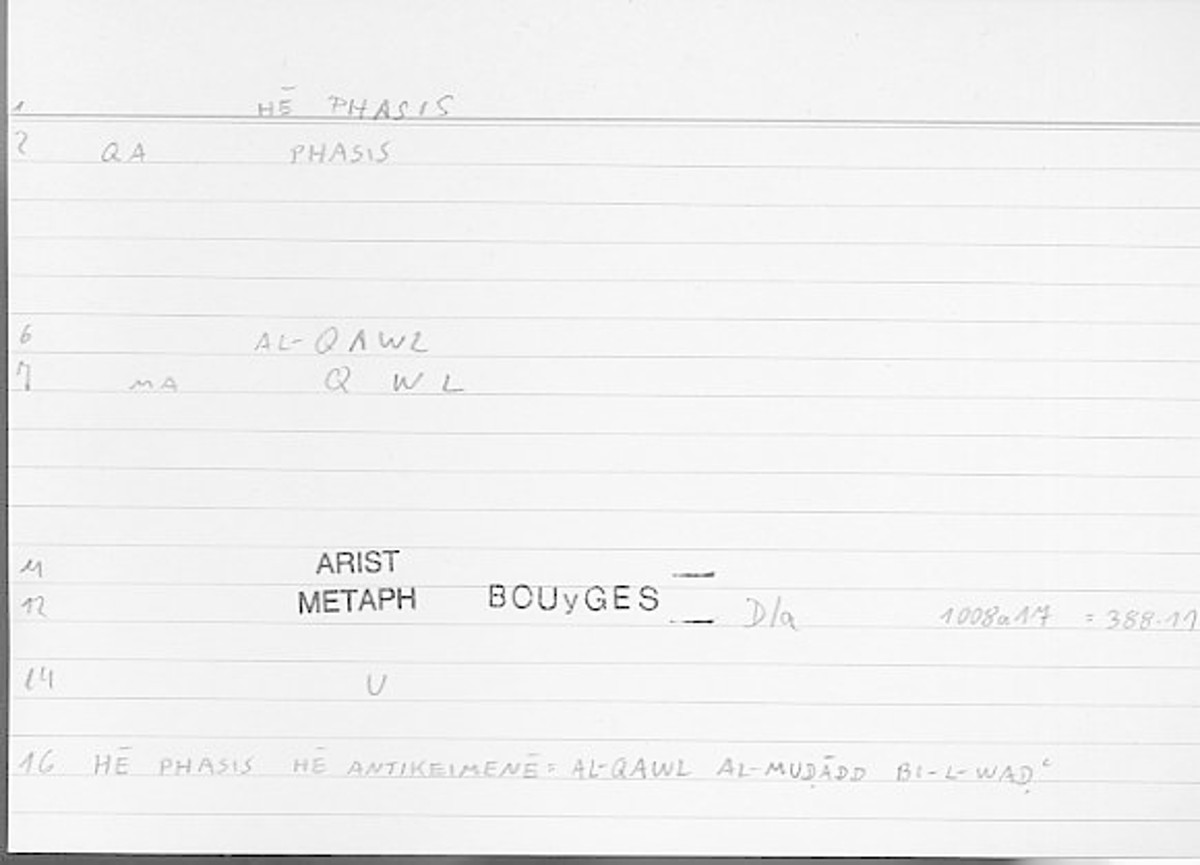 1 HĒ PHASIS
2 QA PHASIS
6 AL-QAWL
7 MA Q W L
11 ARIST
12 METAPH BOUyGES D/a 1008a17 = 388.11
14 U
16 HĒ PHASIS HĒ ANTIKEIMENĒ = AL-QAWL AL-MUḌĀDD BI-L-WAḌʿ